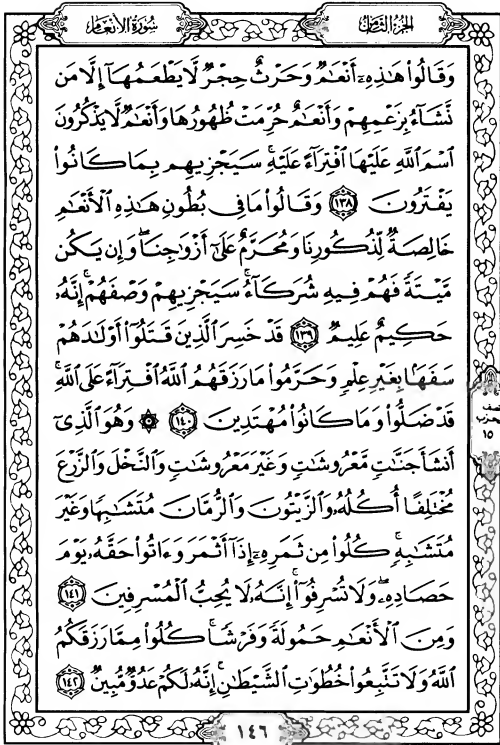 سُورَةُ الأَنْعَام
الجُزْءُ الثَّامِنُ
وَقَالُوا۟ هَٰذِهِۦٓ أَنْعَٰمٌ وَحَرْثٌ حِجْرٌ لَّا يَطْعَمُهَآ إِلَّا مَن
نَّشَآءُ بِزَعْمِهِمْ وَأَنْعَٰمٌ حُرِّمَتْ ظُهُورُهَا وَأَنْعَٰمٌ لَّا يَذْكُرُونَ
ٱسْمَ ٱللَّهِ عَلَيْهَا ٱفْتِرَآءً عَلَيْهِ ۚ سَيَجْزِيهِم بِمَا كَانُوا۟
يَفْتَرُونَ ١٣٨ وَقَالُوا۟ مَا فِى بُطُونِ هَٰذِهِ ٱلْأَنْعَٰمِ
خَالِصَةٌ لِّذُكُورِنَا وَمُحَرَّمٌ عَلَىٰٓ أَزْوَٰجِنَا ۖ وَإِن يَكُن
مَّيْتَةً فَهُمْ فِيهِ شُرَكَآءُ ۚ سَيَجْزِيهِمْ وَصْفَهُمْ ۚ إِنَّهُۥ
حَكِيمٌ عَلِيمٌ ١٣٩ قَدْ خَسِرَ ٱلَّذِينَ قَتَلُوٓا۟ أَوْلَٰدَهُمْ
سَفَهًۢا بِغَيْرِ عِلْمٍ وَحَرَّمُوا۟ مَا رَزَقَهُمُ ٱللَّهُ ٱفْتِرَآءً عَلَى ٱللَّهِ ۚ
قَدْ ضَلُّوا۟ وَمَا كَانُوا۟ مُهْتَدِينَ ١٤٠ ۞ وَهُوَ ٱلَّذِىٓ
أَنشَأَ جَنَّٰتٍ مَّعْرُوشَٰتٍ وَغَيْرَ مَعْرُوشَٰتٍ وَٱلنَّخْلَ وَٱلزَّرْعَ
مُخْتَلِفًا أُكُلُهُۥ وَٱلزَّيْتُونَ وَٱلرُّمَّانَ مُتَشَٰبِهًا وَغَيْرَ
مُتَشَٰبِهٍ ۚ كُلُوا۟ مِن ثَمَرِهِۦٓ إِذَآ أَثْمَرَ وَءَاتُوا۟ حَقَّهُۥ يَوْمَ
حَصَادِهِۦ ۖ وَلَا تُسْرِفُوٓا۟ ۚ إِنَّهُۥ لَا يُحِبُّ ٱلْمُسْرِفِينَ ١٤١
وَمِنَ ٱلْأَنْعَٰمِ حَمُولَةً وَفَرْشًا ۚ كُلُوا۟ مِمَّا رَزَقَكُمُ
ٱللَّهُ وَلَا تَتَّبِعُوا۟ خُطُوَٰتِ ٱلشَّيْطَٰنِ ۚ إِنَّهُۥ لَكُمْ عَدُوٌّ مُّبِينٌ ١٤٢
الحزب
١٥
١٤٦